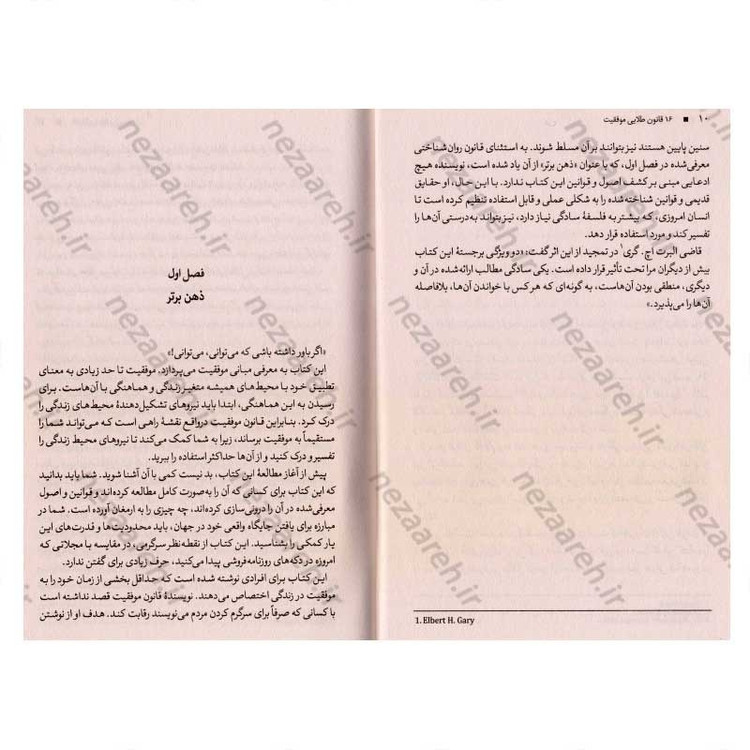 ۱۰ ■ ۱۶ قانون طلایی موفقیت
سنین پایین هستند نیز بتوانند بر آن مسلط شوند. به استثنای قانون روان‌شناختی
معرفی‌شده در فصل اول، که با عنوان «ذهن برتر» از آن یاد شده است، نویسنده هیچ
ادعایی مبنی بر کشف اصول و قوانین این کتاب ندارد. با این حال، او حقایق
قدیمی و قوانین شناخته‌شده را به شکلی عملی و قابل استفاده تنظیم کرده است تا
انسان امروزی، که بیشتر به فلسفهٔ سادگی نیاز دارد، نیز بتواند به‌درستی آن‌ها را
تفسیر کند و مورد استفاده قرار دهد.
قاضی البرت اچ. گری۱ در تمجید از این اثر گفت: «دو ویژگی برجستهٔ این کتاب
بیش از دیگران مرا تحت تأثیر قرار داده است. یکی سادگی مطالب ارائه‌شده در آن و
دیگری، منطقی بودن آن‌هاست، به گونه‌ای که هر کس با خواندن آن‌ها، بلافاصله
آن‌ها را می‌پذیرد.»
1. Elbert H. Gary
فصل اول
ذهن برتر
«اگر باور داشته باشی که می‌توانی، می‌توانی!»
این کتاب به معرفی مبانی موفقیت می‌پردازد. موفقیت تا حد زیادی به معنای
تطبیق خود با محیط‌های همیشه متغیر زندگی و هماهنگی با آن‌هاست. برای
رسیدن به این هماهنگی، ابتدا باید نیروهای تشکیل‌دهندهٔ محیط‌های زندگی را
درک کرد. بنابراین قانون موفقیت درواقع نقشهٔ راهی است که می‌تواند شما را
مستقیماً به موفقیت برساند، زیرا به شما کمک می‌کند تا نیروهای محیط زندگی را
تفسیر و درک کنید و از آن‌ها حداکثر استفاده را ببرید.
پیش از آغاز مطالعهٔ این کتاب، بد نیست کمی با آن آشنا شوید. شما باید بدانید
که این کتاب برای کسانی که آن را به‌صورت کامل مطالعه کرده‌اند و قوانین و اصول
معرفی‌شده در آن را درونی‌سازی کرده‌اند، چه چیزی را به ارمغان آورده است. شما در
مبارزه برای یافتن جایگاه واقعی خود در جهان، باید محدودیت‌ها و قدرت‌های این
یار کمکی را بشناسید. این کتاب از نقطه‌نظر سرگرمی، در مقایسه با مجلاتی که
امروزه در دکه‌های روزنامه‌فروشی پیدا می‌کنید، حرف زیادی برای گفتن ندارد.
این کتاب برای افرادی نوشته شده است که حداقل بخشی از زمان خود را به
موفقیت در زندگی اختصاص می‌دهند. نویسندهٔ قانون موفقیت قصد نداشته است
با کسانی که صرفاً برای سرگرم کردن مردم می‌نویسند رقابت کند. هدف او از نوشتن
nezaareh.ir
nezaareh.ir
nezaareh.ir
nezaareh.ir
nezaareh.ir
nezaareh.ir
nezaareh.ir
nezaareh.ir